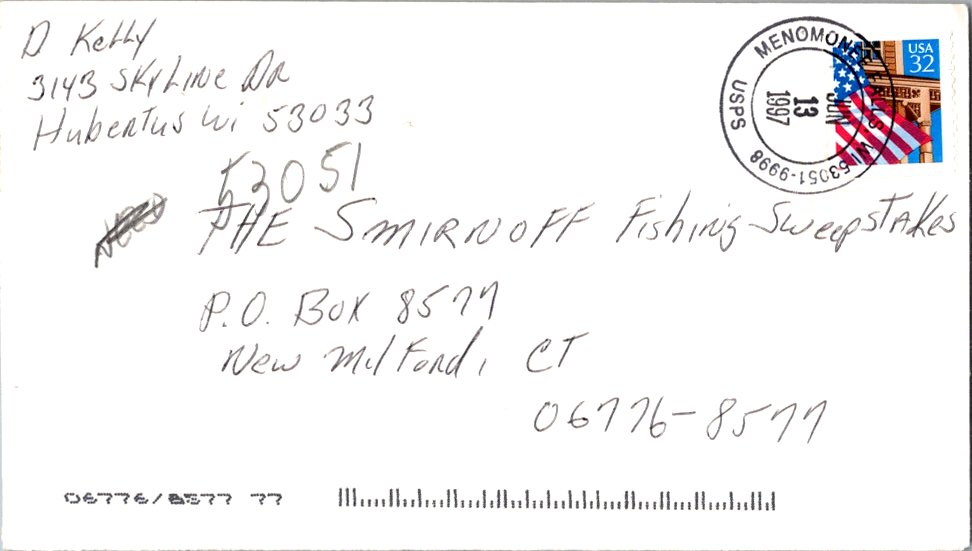 D Kelly
3143 Skyline Dr
Hubertus Wi 53033
53051
MENOMONEE FALLS, WI 53051-9998
JUN
13
1997
USPS
USA
32
THE SMIRNOFF Fishing Sweepstakes
P.O. Box 8577
New Milford, CT
06776-8577
06776/8577 77